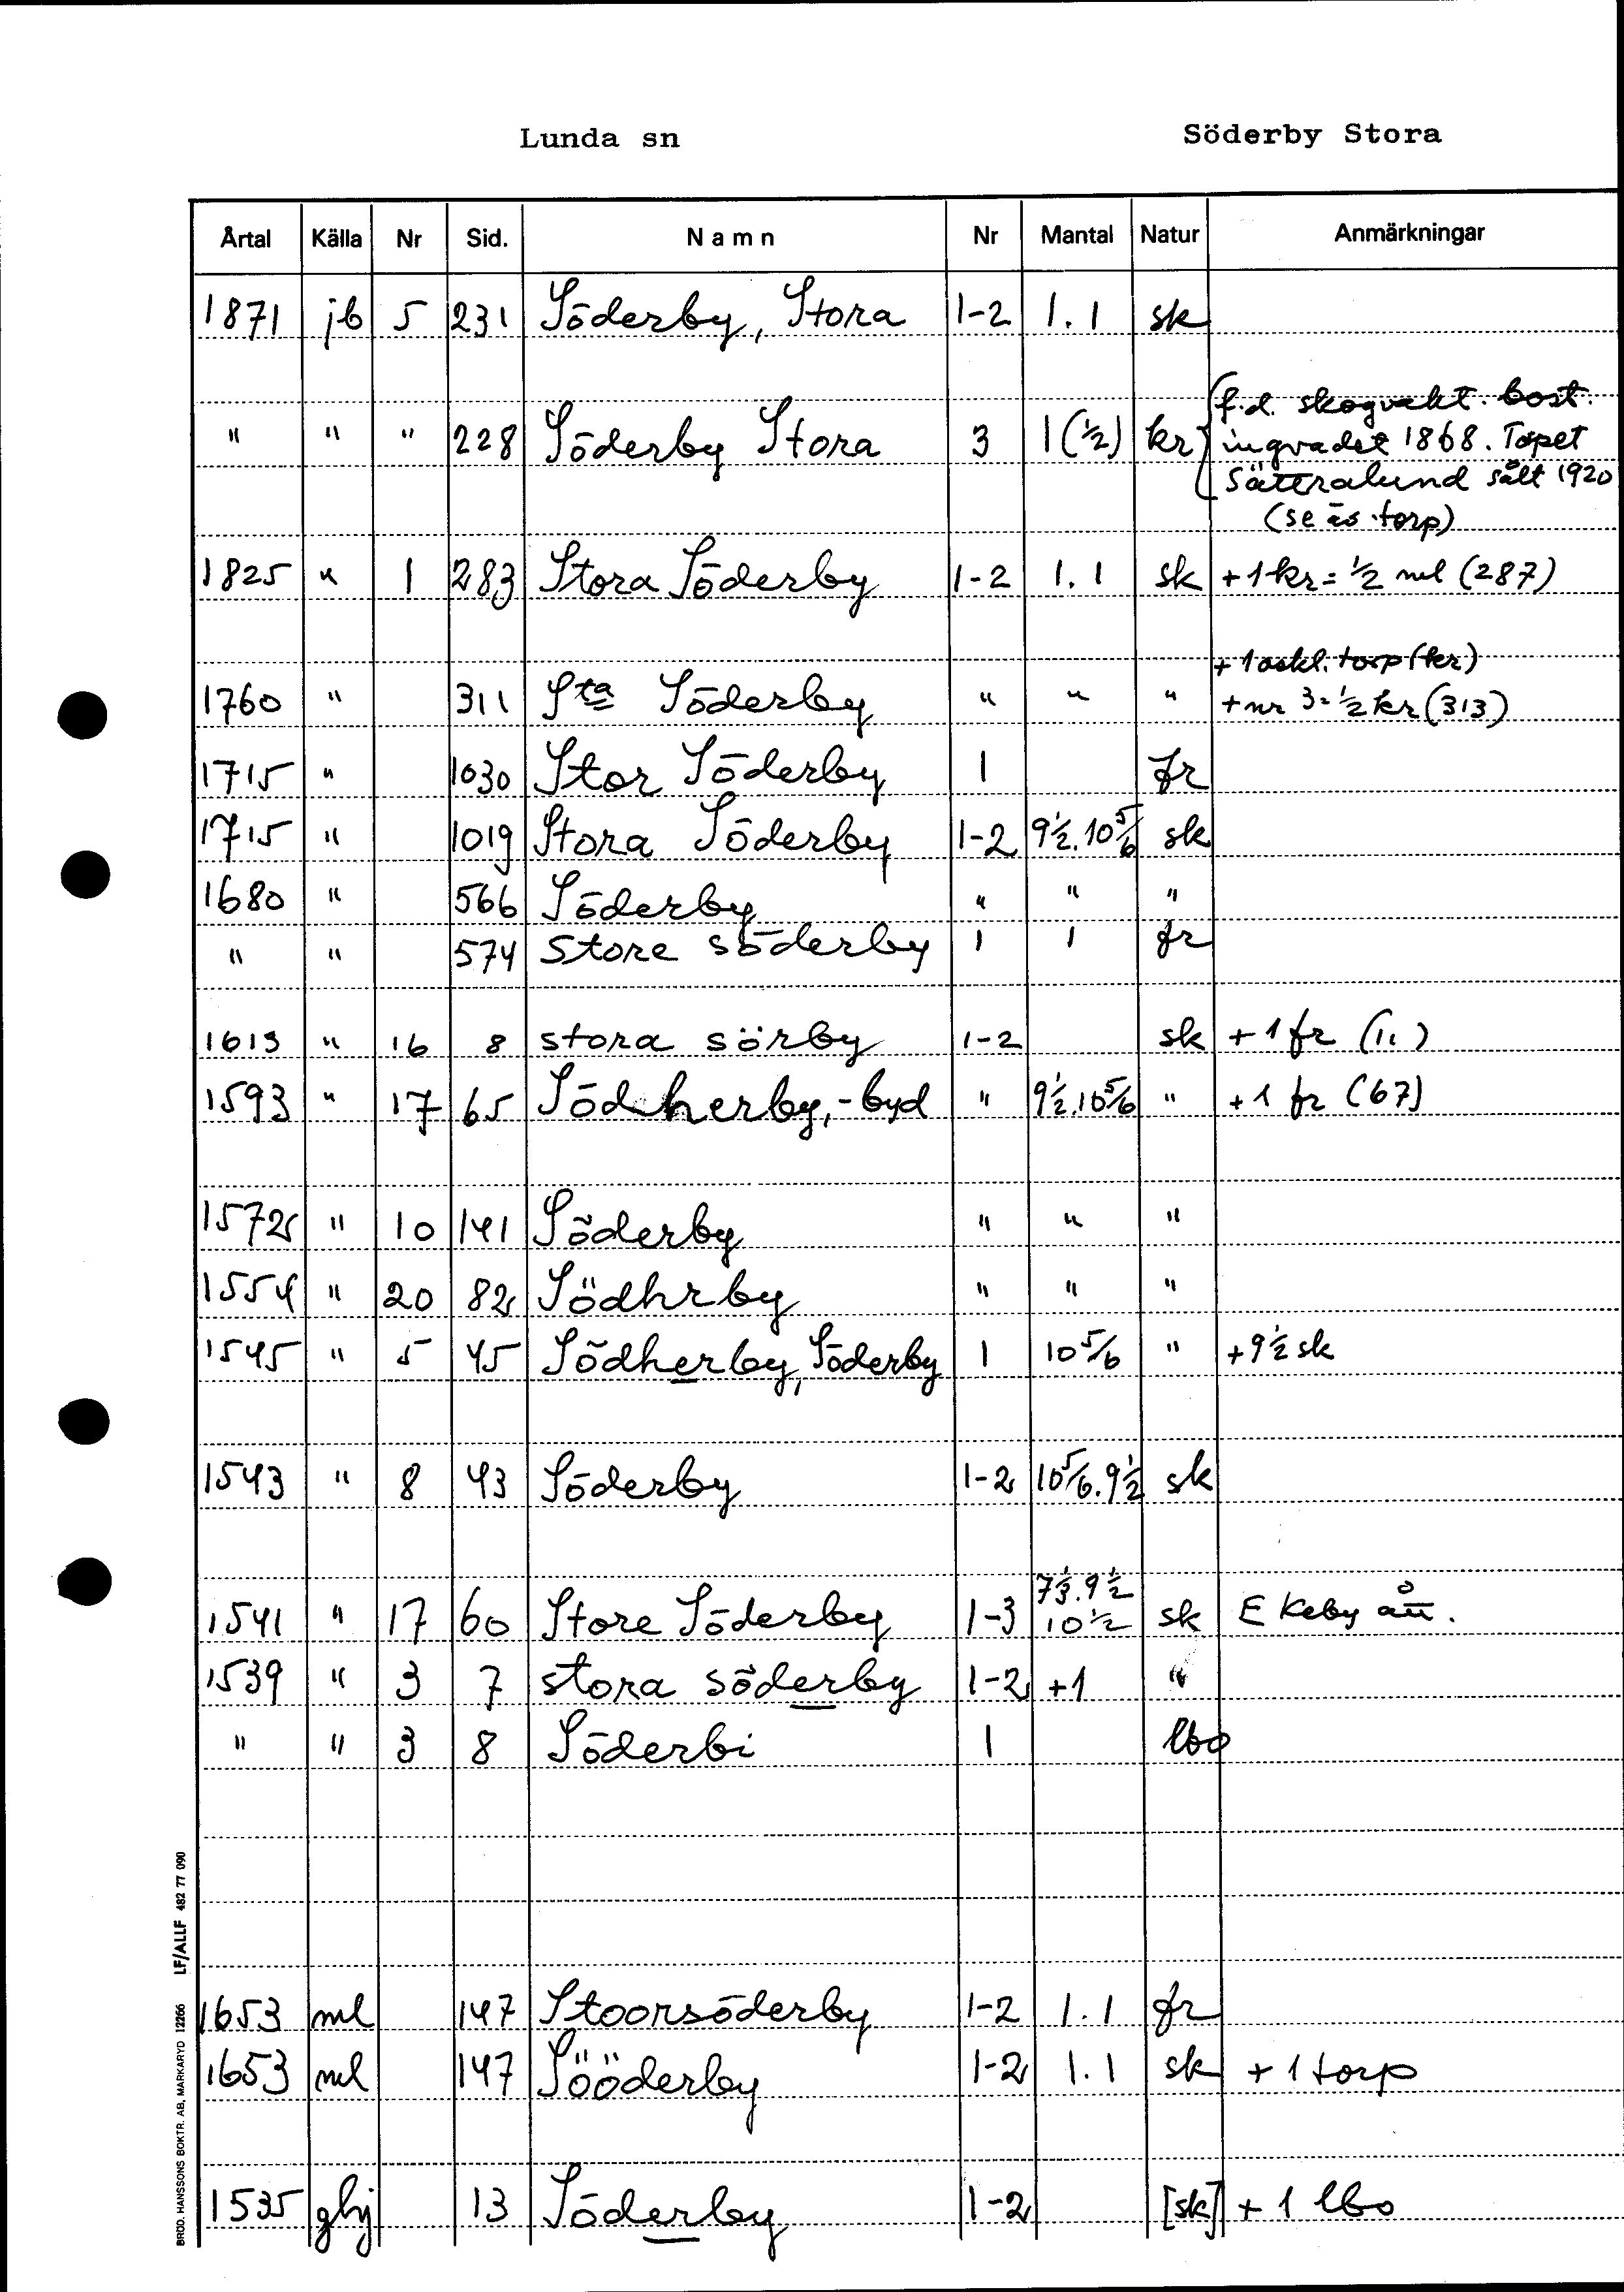 Lunda sn Söderby Stora
Årtal Källa Nr Sid. Namn Nr Mantal Natur Anmärkningar
1871 jb 5 231 Söderby, Stora 1-2 1.1 sk
f.d. skogvakt. bost.
" " " 228 Söderby Stora 3 1(½) kr ingvadet 1868. Torpet
Sätteralund sålt 1920
(se äs. torp)
1825 " 1 283 Stora Söderby 1-2 1.1 sk +1 kr = ½ ml (287)
+ 1 oskl. torp (kr)
1760 " 311 Sta Söderby " " " + nr 3 = ½ kr (313)
1715 " 1030 Stor Söderby 1 fr
1715 " 1019 Stora Söderby 1-2 9½.10 5/6 sk
1680 " 566 Söderby " " "
" " 574 Store söderby 1 1 fr
1613 " 16 8 stora sörby 1-2 sk + 1 fr (11)
1593 " 17 65 Södherby, -byd " 9½.10 5/6 " + 1 fr (67)
1572 " 10 141 Söderby " " "
1554 " 20 82 Södhrby " " "
1545 " 5 45 Södherby, Söderby 1 10 5/6 " +9½ sk
1543 " 8 43 Söderby 1-2 10 5/6. 9½ sk
7⅓. 9½
1541 " 17 60 Store Söderby 1-3 10½ sk E Keby ått.
1539 " 3 7 stora söderby 1-2 +1 "
" " 3 8 Söderbi 1 lbo
1653 ml 147 Stoorsöderby 1-2 1.1 fr
1653 ml 147 Sööderby 1-2 1.1 sk + 1 torp
1535 ghj 13 Söderby 1-2 [sk] + 1 lbo
BROD. HANSSONS BOKTR. AB, MARKARYD 12266 LF/ALLF 482 77 090